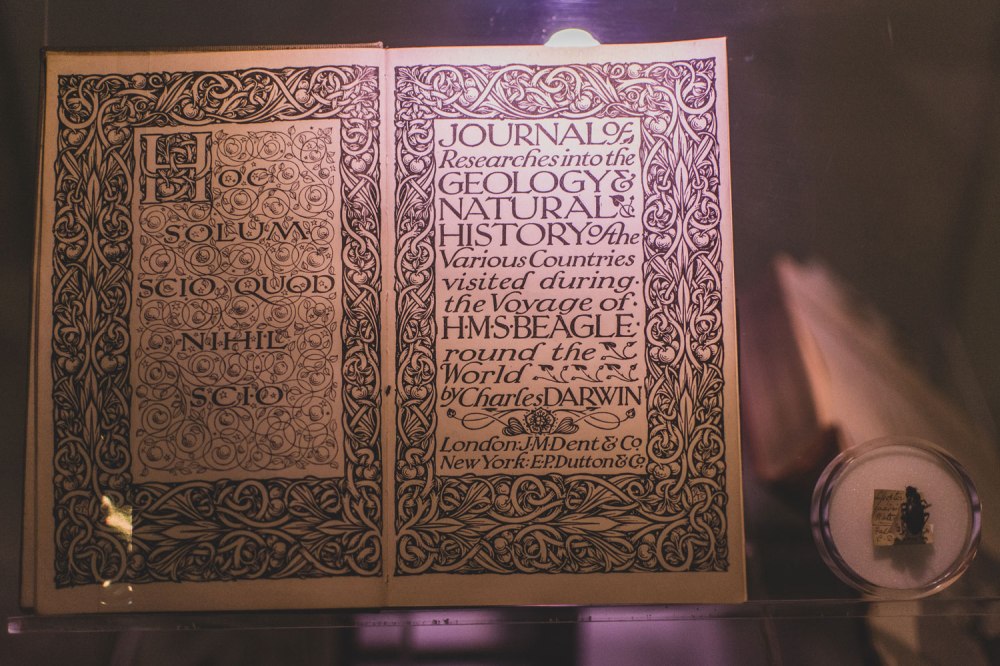 HOC
SOLUM
SCIO·QUOD
·NIHIL·
SCIO
JOURNAL of
Researches into the
GEOLOGY &
NATURAL
HISTORY of the
Various Countries
visited during
the Voyage of
H·M·S·BEAGLE·
round the
World
by Charles DARWIN
London: J·M·Dent & Co
New York: E·P·Dutton & Co.